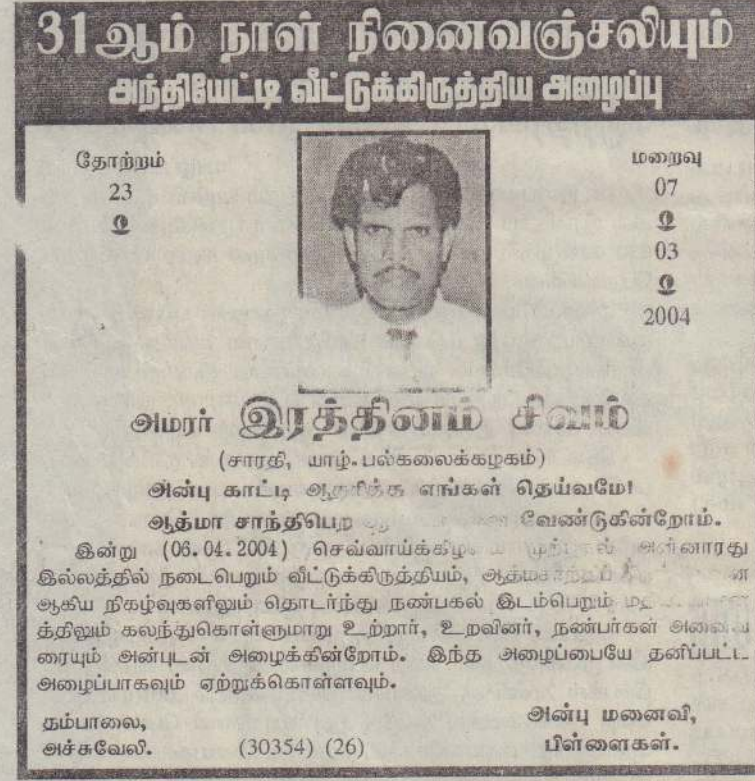 31ஆம் நாள் நினைவஞ்சலியும்
அந்தியேட்டி வீட்டுக்கிருத்திய அழைப்பு
தோற்றம்
23
மறைவு
07
03
2004
அமரர் இரத்தினம் சிவம்
(சாரதி, யாழ். பல்கலைக்கழகம்)
அன்பு காட்டி ஆதரித்த எங்கள் தெய்வமே!
ஆத்மா சாந்திபெற வேண்டுகின்றோம்.
இன்று (06.04.2004) செவ்வாய்க்கிழமை முற்பகல் அன்னாரது
இல்லத்தில் நடைபெறும் வீட்டுக்கிருத்தியம்,
ஆகிய நிகழ்வுகளிலும் தொடர்ந்து நண்பகல் இடம்பெறும்
த்திலும் கலந்துகொள்ளுமாறு உற்றார், உறவினர், நண்பர்கள் அனைவ
ரையும் அன்புடன் அழைக்கின்றோம். இந்த அழைப்பையே தனிப்பட்ட
அழைப்பாகவும் ஏற்றுக்கொள்ளவும்.
தம்பாலை,
அச்சுவேலி. (30354) (26)
அன்பு மனைவி,
பிள்ளைகள்.